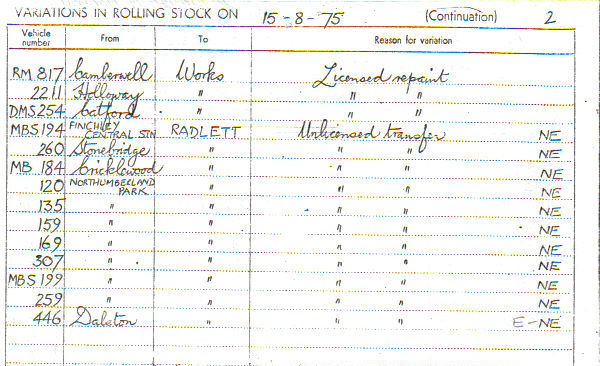 VARIATIONS IN ROLLING STOCK ON 15-8-75 (Continuation) 2
Vehicle number From To Reason for variation
RM 817 Camberwell Works Licensed repaint
2211 Holloway " " "
DMS 254 Catford " " "
MBS 194 FINCHLEY CENTRAL STN RADLETT Unlicensed transfer NE
260 Stonebridge " " " NE
MB 184 Cricklewood " " " NE
120 NORTHUMBERLAND PARK " " " NE
135 " " " " NE
159 " " " " NE
169 " " " " NE
307 " " " " NE
MBS 199 " " " " NE
259 " " " " NE
446 Dalston " " " E-NE